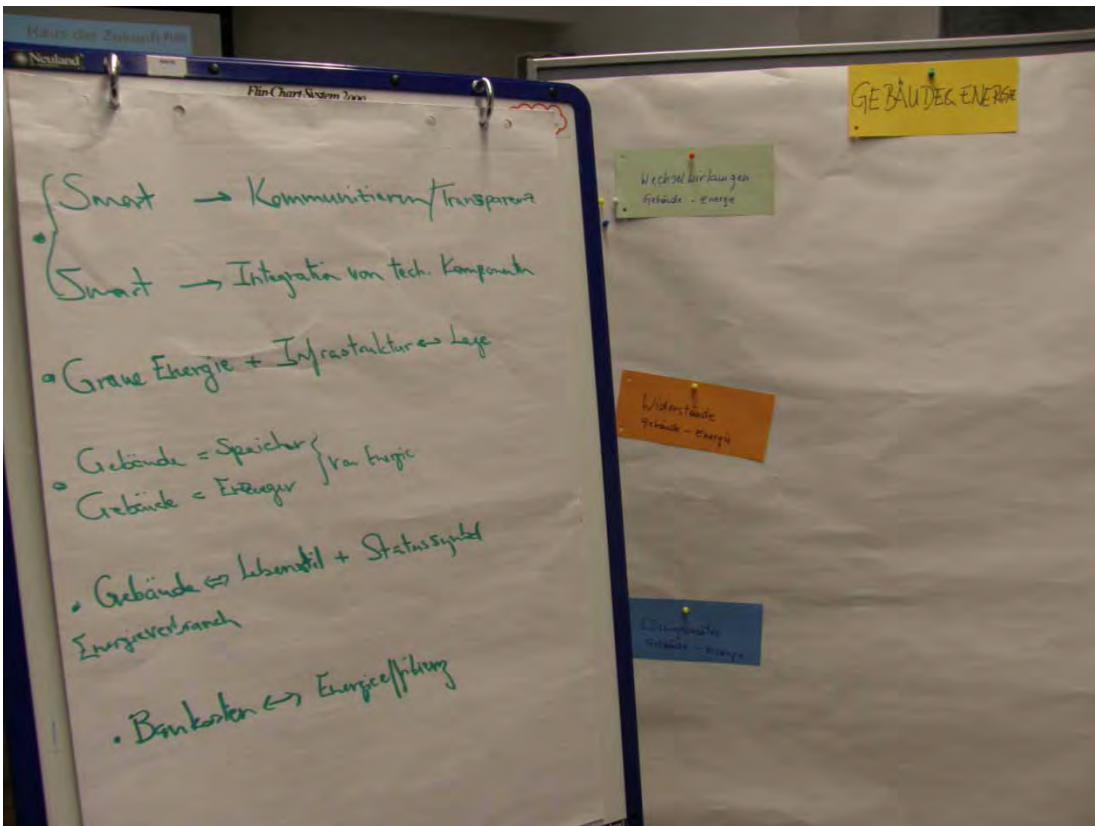 Haus der Zukunft PLUS
Neuland
Flip Chart System 2000
Smart → Kommunitieren/Transparenz
Smart → Integration von tech. Komponenten
• Graue Energie + Infrastruktur ↔ Lage
• Gebäude = Speicher } von Energie
Gebäude = Erzeuger
• Gebäude ⇔ Lebensstil + Statussymbol
Energieverbrauch
• Baukosten ↔ Energieeffizienz
GEBÄUDE & ENERGIE
Wechselwirkungen
Gebäude - Energie
Widerstände
Gebäude - Energie
Lösungsansätze
Gebäude - Energie